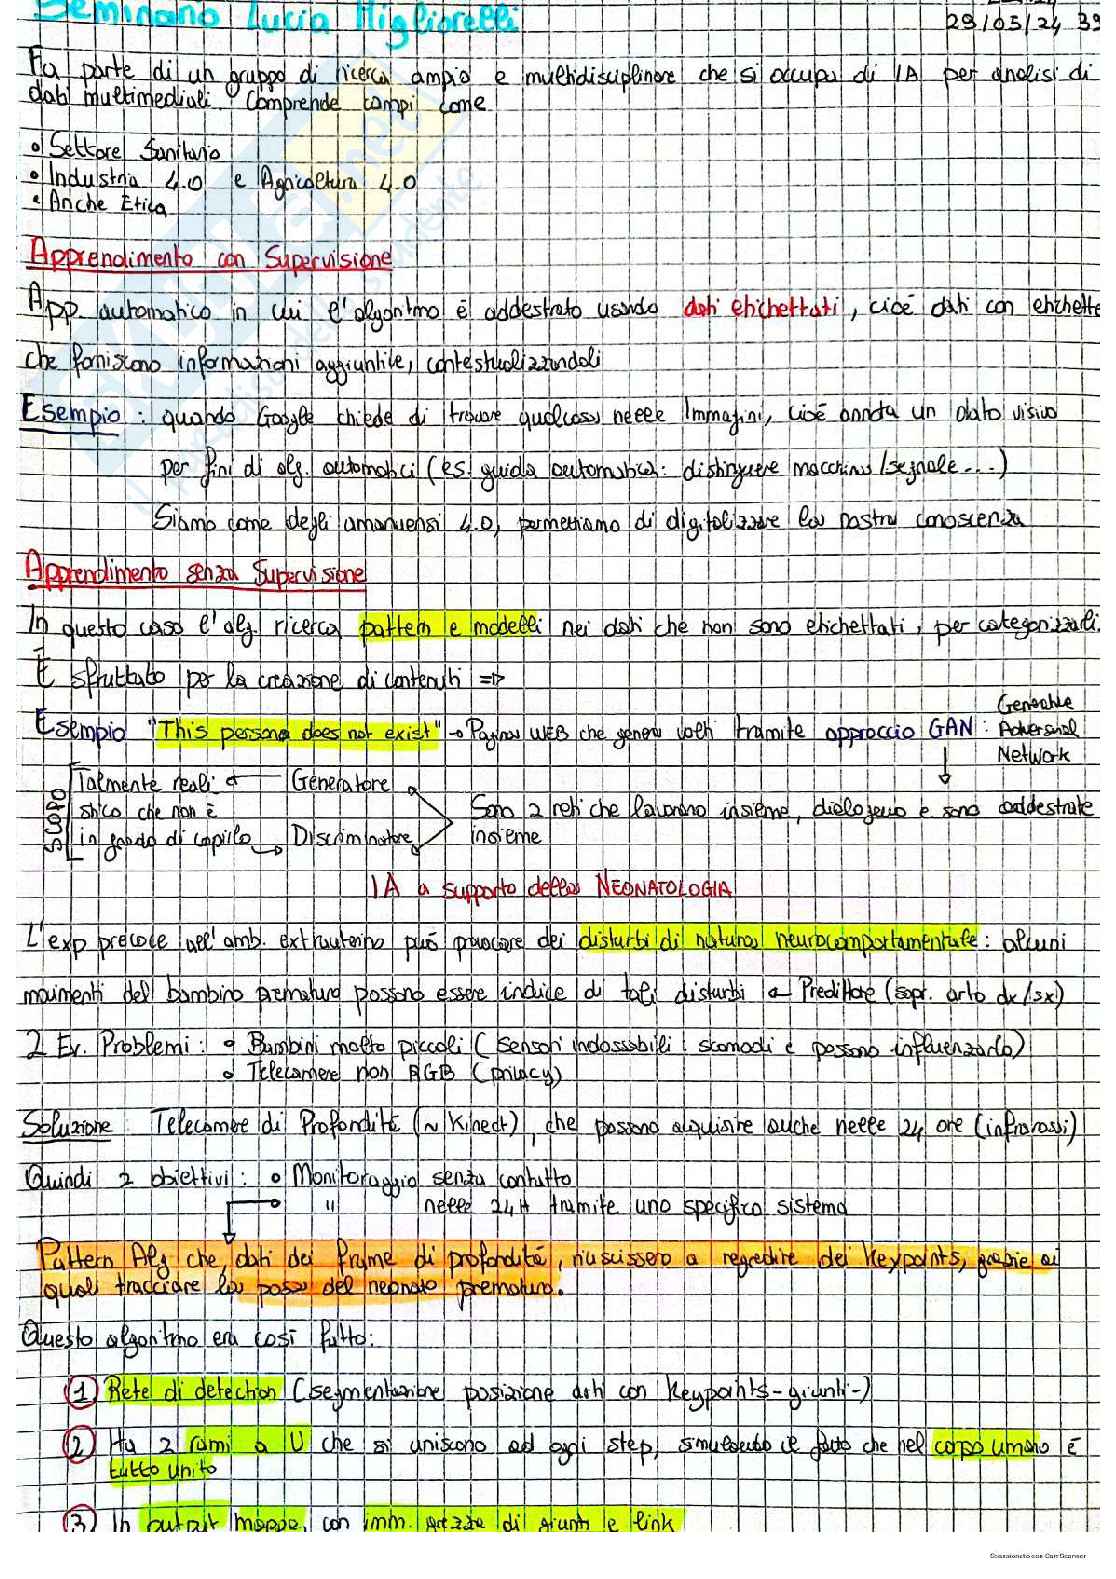 Seminario Lucia Migliorelli
29/05/24 39
Fa parte di un gruppo di ricerca ampio e multidisciplinare che si occupa di IA per analisi di
dati multimediali Comprende campi come
• Settore Sanitario
• Industria 4.0 e Agricoltura 4.0
• Anche Etica
Apprendimento con Supervisione
App automatico in cui l'algoritmo è addestrato usando dati etichettati, cioè dati con etichette
che forniscono informazioni aggiuntive, contestualizzandoli
Esempio: quando Google chiede di trovare qualcosa nelle Immagini, cioè annota un dato visivo
per fini di alg. automatici (es. guida automatica: distinguere macchina/segnale...)
Siamo come degli amanuensi 4.0, permettiamo di digitalizzare la nostra conoscenza
Apprendimento senza Supervisione
In questo caso l'alg. ricerca pattern e modelli nei dati che non sono etichettati, per categorizzarli.
È sfruttato per la creazione di contenuti =>
Esempio "This persona does not exist" → Pagina WEB che genera volti tramite approccio GAN: Adversarial
Network
Talmente reali ← Generatore
stico che non è
in grado di capirlo → Discriminatore
SCOPO
Sono 2 reti che lavorano insieme, dialogano e sono addestrate
insieme
IA a supporto della NEONATOLOGIA
L'exp precoce all'amb. extrauterino può provocare dei disturbi di natura neurocomportamentale: alcuni
movimenti del bambino prematuro possono essere indice di tali disturbi ← Predittore (sopr. arto dx/sx)
2 Ev. Problemi: • Bambini molto piccoli (sensori indossabili: scomodi e possono influenzarlo)
• Telecamere non RGB (privacy)
Soluzione: Telecamere di Profondità (~ Kinect), che possono acquisire anche nelle 24 ore (infrarossi)
Quindi 2 obiettivi: • Monitoraggio senza contatto
• " nelle 24H tramite uno specifico sistema
Pattern Alg che, dati dei frame di profondità, riuscissero a regredire dei Keypoints, grazie ai
quali tracciare la posa del neonato prematuro.
Questo algoritmo era così fatto:
1 Rete di detection (segmentazione posizione arti con Keypoints-giunti-)
2 Ha 2 rami a U che si uniscono ad ogni step, simulando il fatto che nel corpo umano è
tutto unito
3 In output mappe, con imm. grezze di giunti e link
Scansionato con CamScanner